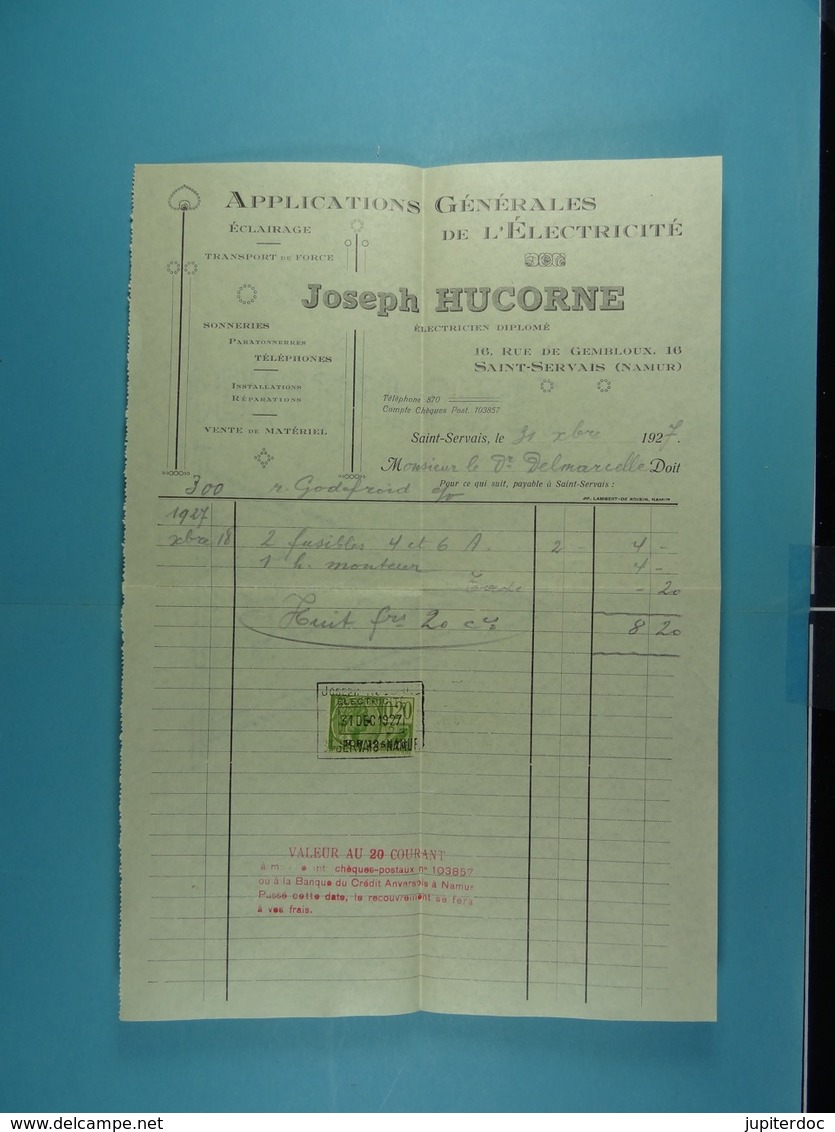 APPLICATIONS GÉNÉRALES
DE L'ÉLECTRICITÉ
ÉCLAIRAGE
TRANSPORT DE FORCE
Joseph HUCORNE
ÉLECTRICIEN DIPLOMÉ
SONNERIES
PARATONNERRES
TÉLÉPHONES
16, RUE DE GEMBLOUX, 16
SAINT-SERVAIS (NAMUR)
INSTALLATIONS
RÉPARATIONS
Téléphone 870
Compte Chèques Post. 103857
VENTE DE MATÉRIEL
Saint-Servais, le 31 xbre 1927.
Monsieur le Dr Delmarcelle Doit
Pour ce qui suit, payable à Saint-Servais :
300 r. Godefroid
IMP. LAMBERT-DE ROISIN, NAMUR
1927
xbre 18 2 fusibles 4 et 6 A. 2 - 4 -
1 h. monteur 4 -
Taxe - 20
Huit frs 20 cs 8 20
JOSEPH
ELECTRICITÉ
0.20
31 DEC 1927
SERVAIS-NAMUR
VALEUR AU 20 COURANT
chèques-postaux n° 103857
ou à la Banque du Crédit Anversois à Namur
Passé cette date, le recouvrement se fera
à vos frais.
www.delcampe.net
jupiterdoc